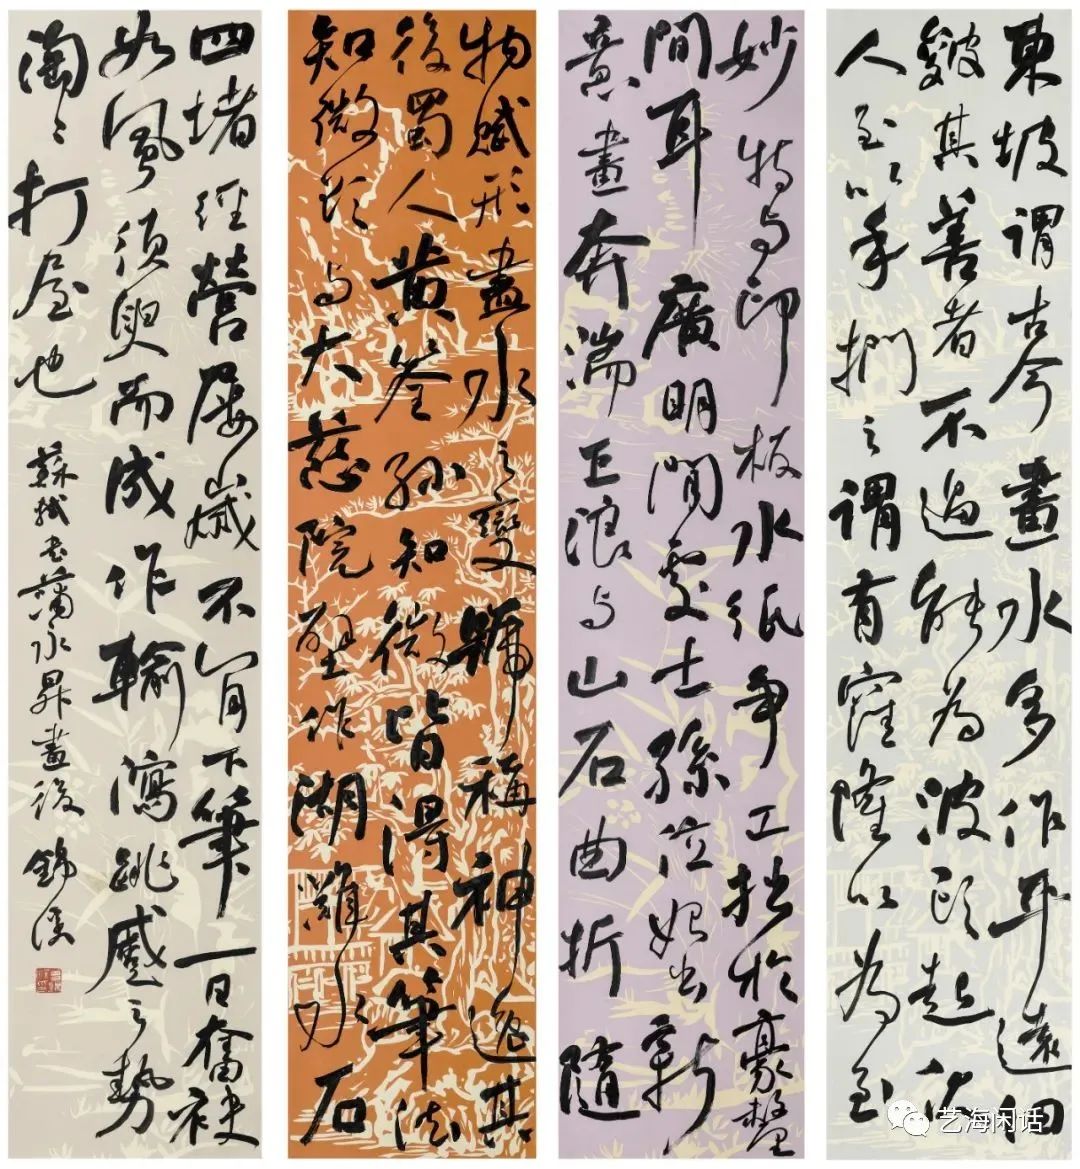 東坡謂古今畫水多作平遠細
皺其善者不過能為波頭起伏
人至以手捫之謂有窪隆以為至
妙特与印板水紙争工拙於豪釐
間耳廣明間處士孫位始出新
意畫奔湍巨浪与山石曲折隨
物賦形盡水之變號稱神逸其
後蜀人黄筌孫知微皆得其筆法
知微欲与大慈院壁作湖灘水石
四堵經營屡歲不肯下筆一日奮袂
如風須臾而成作輸瀉跳蹙之勢
洶〻打屋也
蘇軾書蒲永昇畫後 錦
艺海闲话